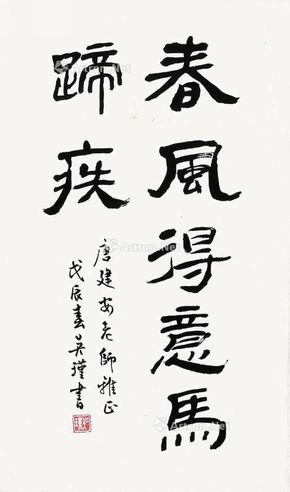 春風得意馬
蹄疾
唐建安老師雅正
戊辰春吳瑾書